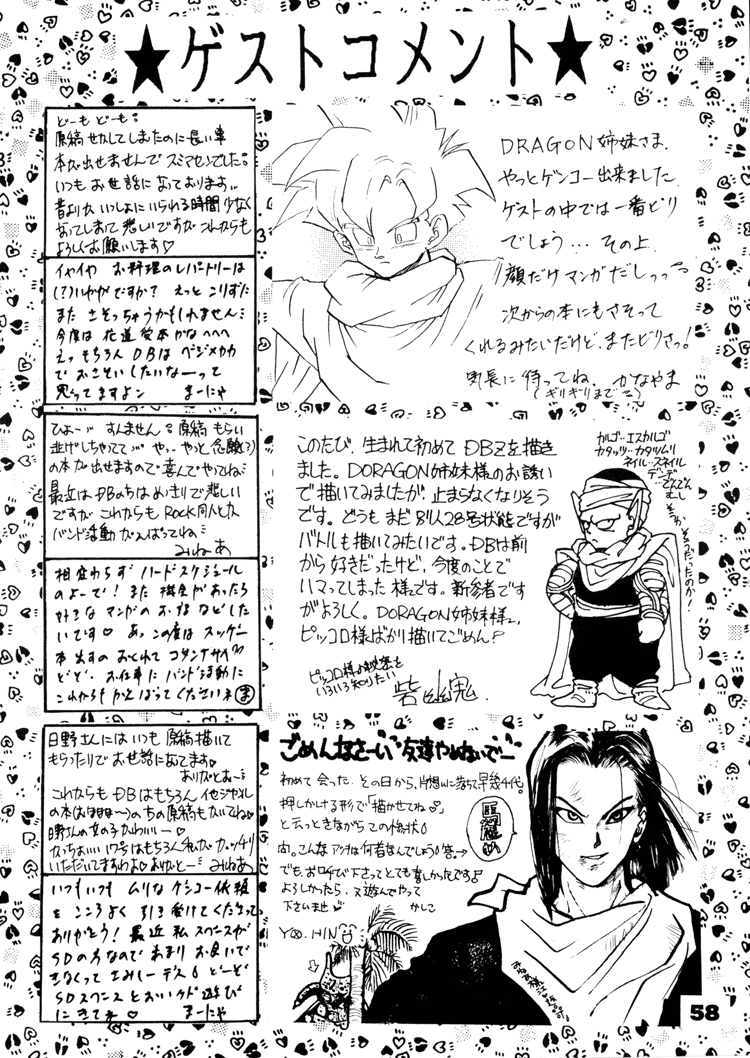 ★ゲストコメント★
どーも どーも。
原稿せかしてしまったのに長い事
本が出せませんでスミマセンでした。
いつも お世話になっております。
昔よりか いっしょに いられる時間少なく
なってしまって 悲しいですが これからも
よろしくお願いします♡
イヤイヤ お料理のレパートリーは
(?)いかがですか? えっと こりずに
また さそっちゃうかもしれません…
今度は 花道 愛本かなへへへ
えっ もちろん DBは ベジメカカ
で おさそいしたいなーって
思ってますよン まーにゃ
DRAGON姉妹さま
やっとゲンコー出来ました
ゲストの中では一番どり
でしょう… その上
顔だけマンガだしっっ
次からの本にもさそって
くれるみたいだけど、またどりさっ!
気長に待ってね。 かなやま
(ギリギリまで)
ひょ〜 すんません 原稿 もらい
逃げしちゃってて やっ…やっと 念願(?)
の本が出せますので喜んでやってね
最近は DBのちは めっきりで 悲しい
ですが これからも ROCK同人とか
バンド活動 がんばってね
みねあ
相変わらず ハードスケジュール
のよーで! また 機会があったら
好きな マンガの お話 などした
いです♡ あっ この度は スッゲー
本出すの おくれて ゴメンナサイ
どーど、お仕事に バンド活動に
これからも がんばって くださいネ ま
このたび、生まれて初めて DBZを描き
ました。DORAGON姉妹様のお誘い
で描いてみましたが、止まらなくなりそう
です。どうも まだ 別人28号状態ですが
バトルも描いてみたいです。DBは前
から 好きだったけど、今度のことで
ハマってしまった 様です。新参者です
がよろしく。DORAGON姉妹様、
ピッコロ様ばかり描いてごめん?
ピッコロ様の秘密を
いろいろ知りたい
砦幽鬼
カルゴ・エスカルゴ
カタッツ・カタツムリ
ネイル・スネイル
デンデ
でんでん
むし
そうか
そうだったのか!
日野さんには いつも 原稿描いて
もらったりで お世話になってます。
ありがとお〜
これからも DBはもちろん
の本(おほほほ〜)のちの原稿もたのむね
日野さんの女の子かわい〜♡
かっちょいい 17号はもちろん私が ガッチリ
いただいてますわよ♡ ありがとー みねあ
いつもいつも ムリな ゲンコー依頼
を こころよく 引き受けてくださって
ありがとう! 最近 私 スペースが
SDの方なので あまり お会いで
きなくって さみしーデス どーど
SDスペースと おいが 遊び
にきてネ まーにゃ
ごめんなさーい 友達やめないで〜
初めて 会った その日から、片想いに落ちて早幾千代。
押しかける形で「描かせてね♪」
と云っときながら この惨状
尚、こんな アタシは何者なんでしょう? 答→
でも、お呼び下さってとても嬉しかったです♪
よろしかったら、又遊んでやって
下さいませ かしこ
58